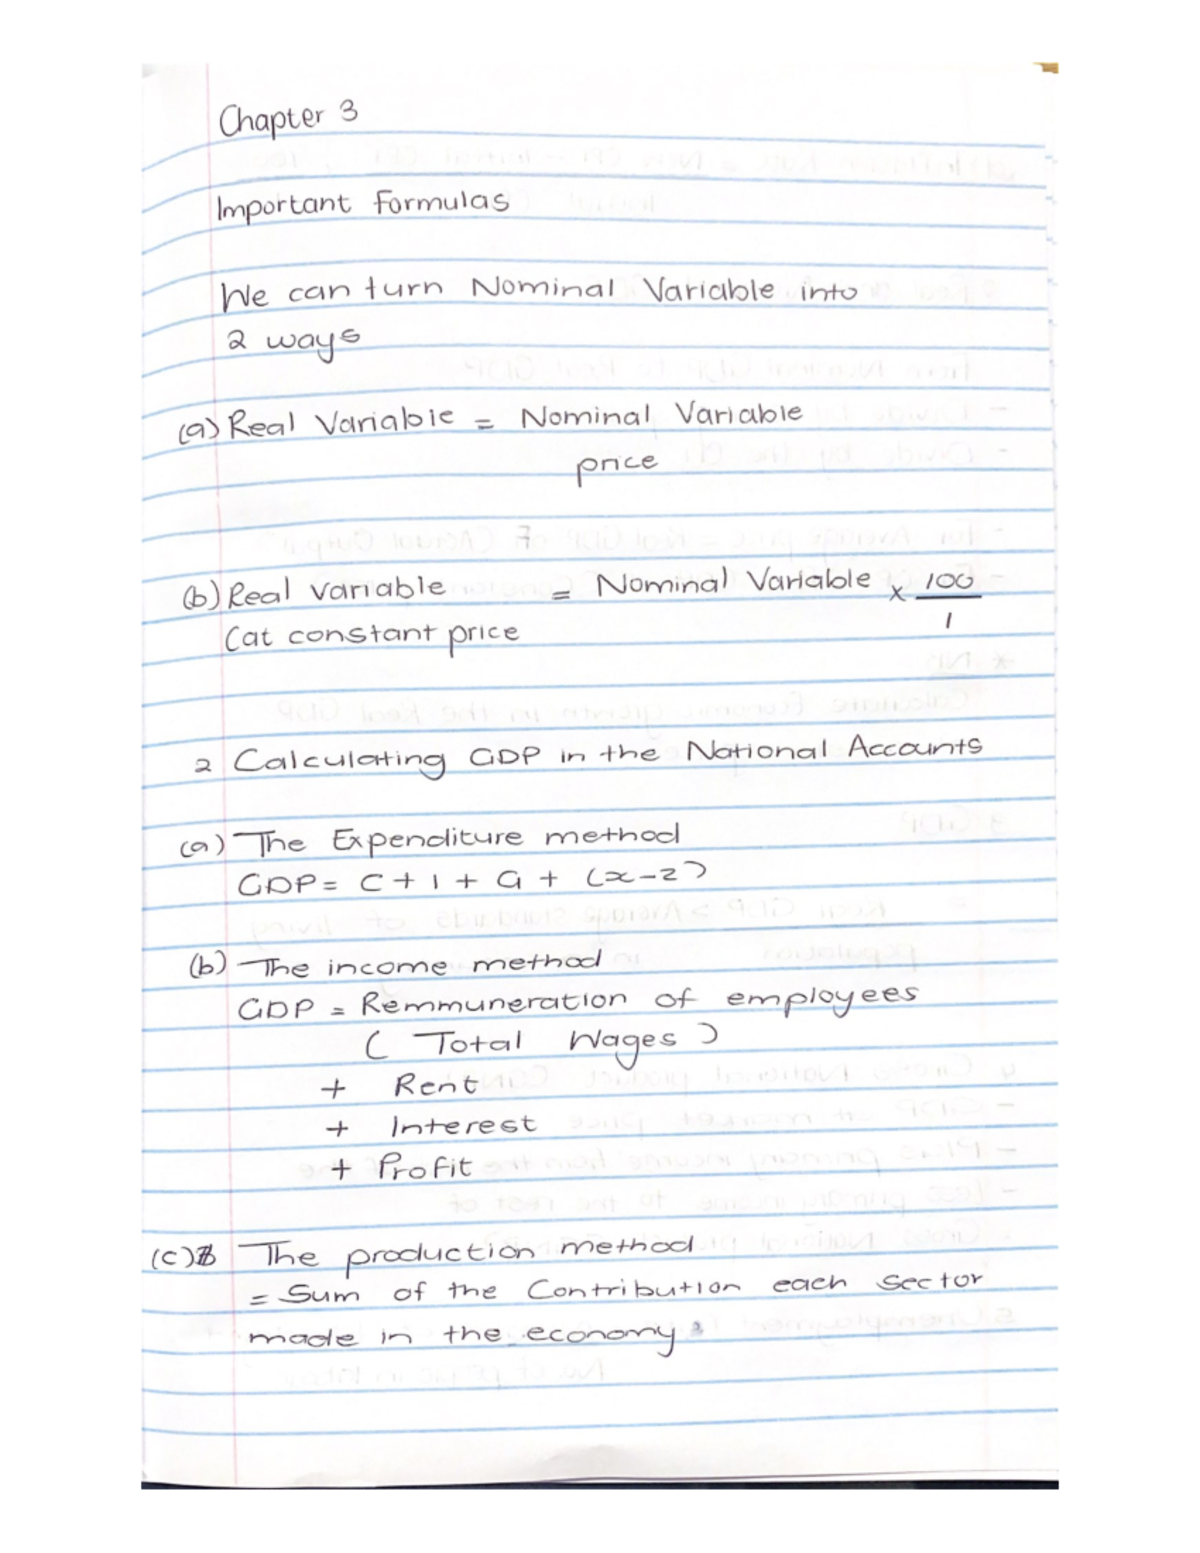 Chapter 3
Important Formulas
We can turn Nominal Variable into
2 ways
(a) Real Variable = Nominal Variable
price
(b) Real Variable = Nominal Variable x 100
(at constant price 1
2 Calculating GDP in the National Accounts
(a) The Expenditure method
GDP = C + I + G + (x-z)
(b) The income method
GDP = Remmuneration of employees
( Total Wages )
+ Rent
+ Interest
+ Profit
(c) The production method
= Sum of the Contribution each sector
made in the economy